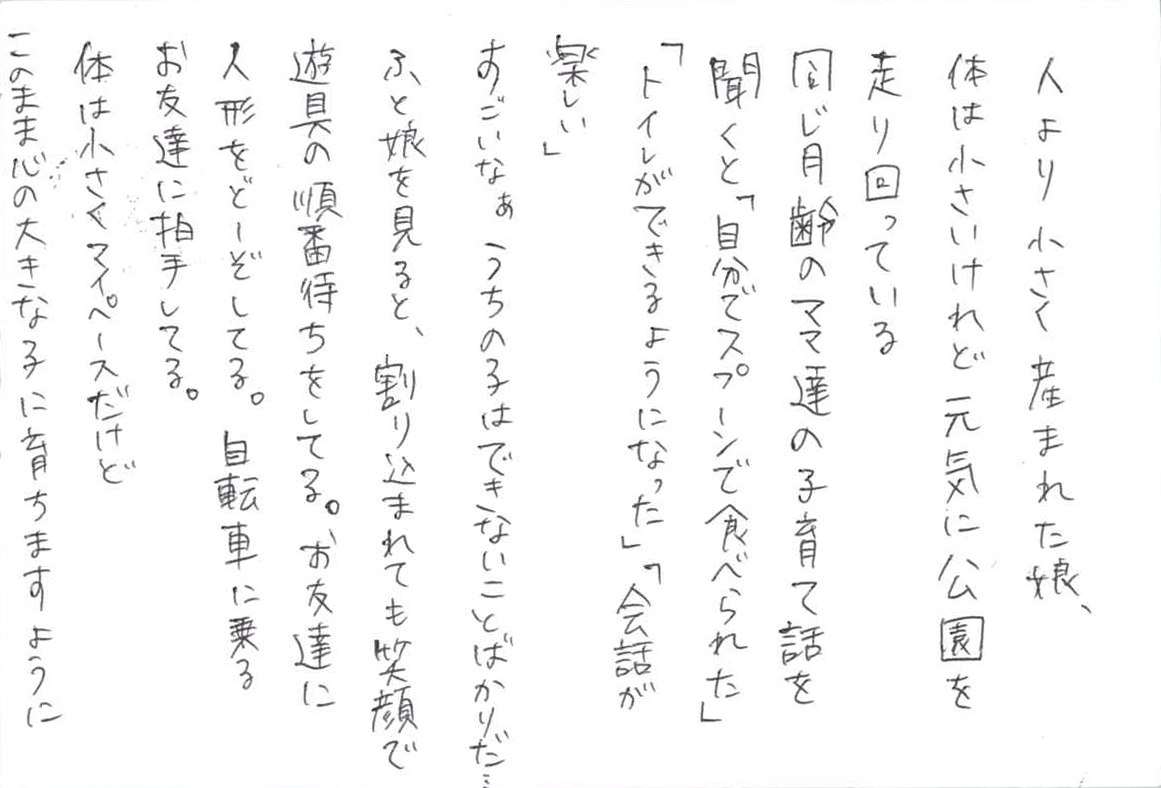 人より小さく産まれた娘、
体は小さいけれど元気に公園を
走り回っている
同じ月齢のママ達の子育て話を
聞くと「自分でスプーンで食べられた」
「トイレができるようになった」「会話が
楽しい」
すごいなぁ うちの子はできないことばかりだ…
ふと娘を見ると、割り込まれても笑顔で
遊具の順番待ちをしてる。お友達に
人形をどーぞしてる。自転車に乗る
お友達に拍手してる。
体は小さくマイペースだけど
このまま心の大きな子に育ちますように